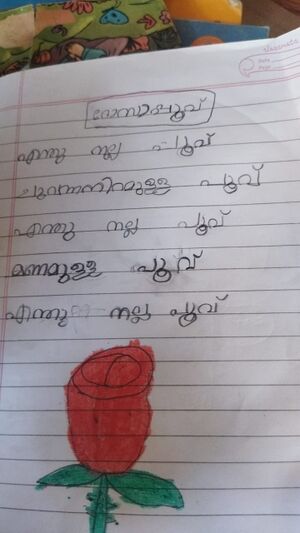 റോസാപ്പൂവ്
എന്തു നല്ല പൂവ്
ചുവന്നനിറമുള്ള പൂവ്
എന്തു നല്ല പൂവ്
മണമുള്ള പൂവ്
എന്തു നല്ല പൂവ്